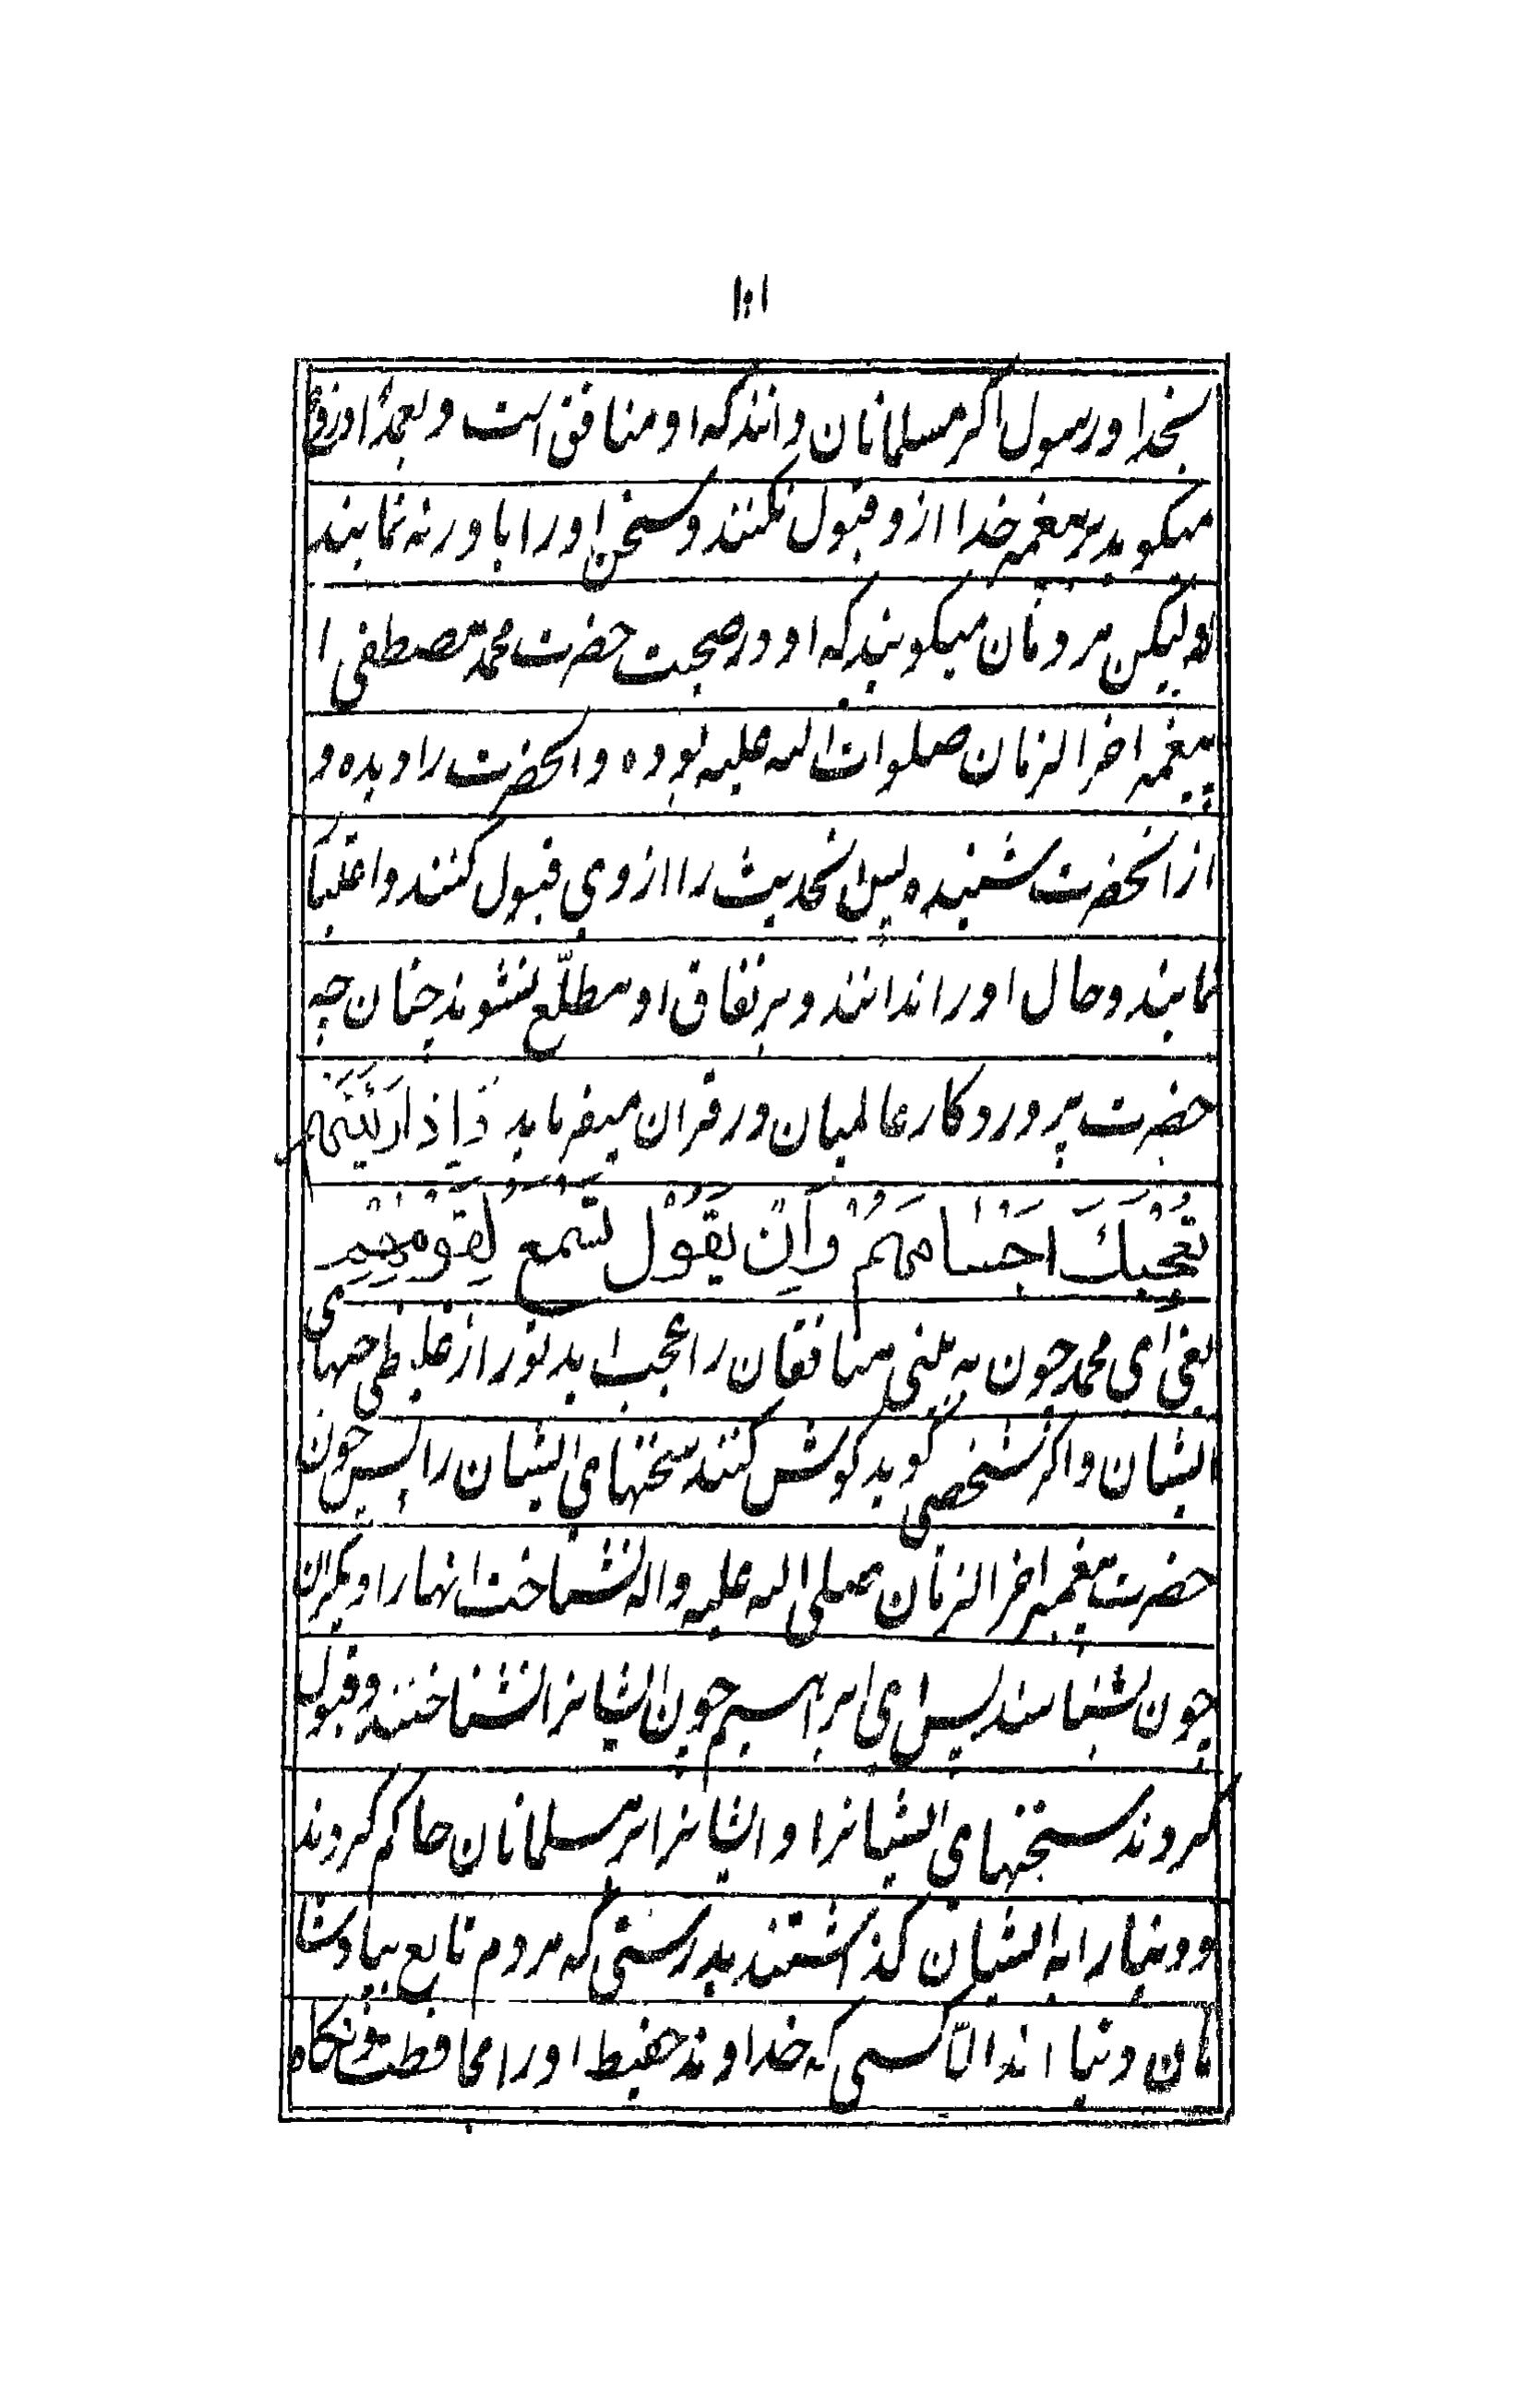 ۱۰۱
بخدا و رسول اکر مسلمانان دانند که او منافق است و بعمدا دروغ
میکوید بر پیغمبر خدا ازو قبول نکنند و سخن او را باور نه نمایند
ولیکن مردمان میکویند که او در صحبت حضرت محمد مصطفی ا
پیغمبر اخر الزمان صلوات الله علیه بوده و انحضرت را دیده و
از انحضرت شنیده پس انحدیث را از وی قبول کنند و
نمایند و حال او را ندانند و بر نفاق او مطلّع نشوند چنان چه
حضرت پروردکار عالمیان در قران میفرماید وَاِذَا رَئَیْتَهُمْ
تُعْجِبُكَ اَجْسَامُهُمْ وَاِنْ یَقُوْل تَسْمَع لِقَوْمِهِمْ
یعنی ای محمد چون به بینی منافقان را عجب اید تو را از غلیظی جسهای
ایشان و اکر شخصی کوید کوش کنند سخنهای ایشان را پس چون
حضرت پیغمبر اخر الزمان صلی الله علیه و اله نشناخت انها را دیکران
چون بشناسند پس ای ابراهیم چون ایشانرا نشناختند و قبول
کردند سخنهای ایشانرا و ایشانرا بر مسلمانان حاکم کردند
و دنیا را به ایشان کذاشتند بدرستی که مردم تابع پادشا
هان دنیا اند الّا کسی که خداوند حفیظ او را محافظت و نکاه